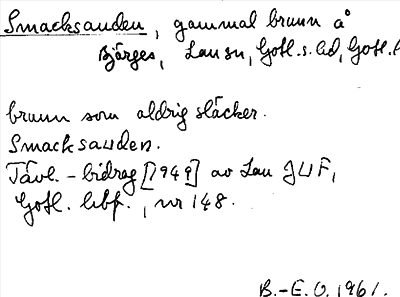 Smacksauden, gammal brunn å
Bjärges, Lau sn, Gotl. s. hd, Gotl. l
brunn som aldrig släcker.
Smacksauden.
Tävl.-bidrag [1949] av Lau JUF,
Gotl. hbf., nr 148.
B.-E. O. 1961.